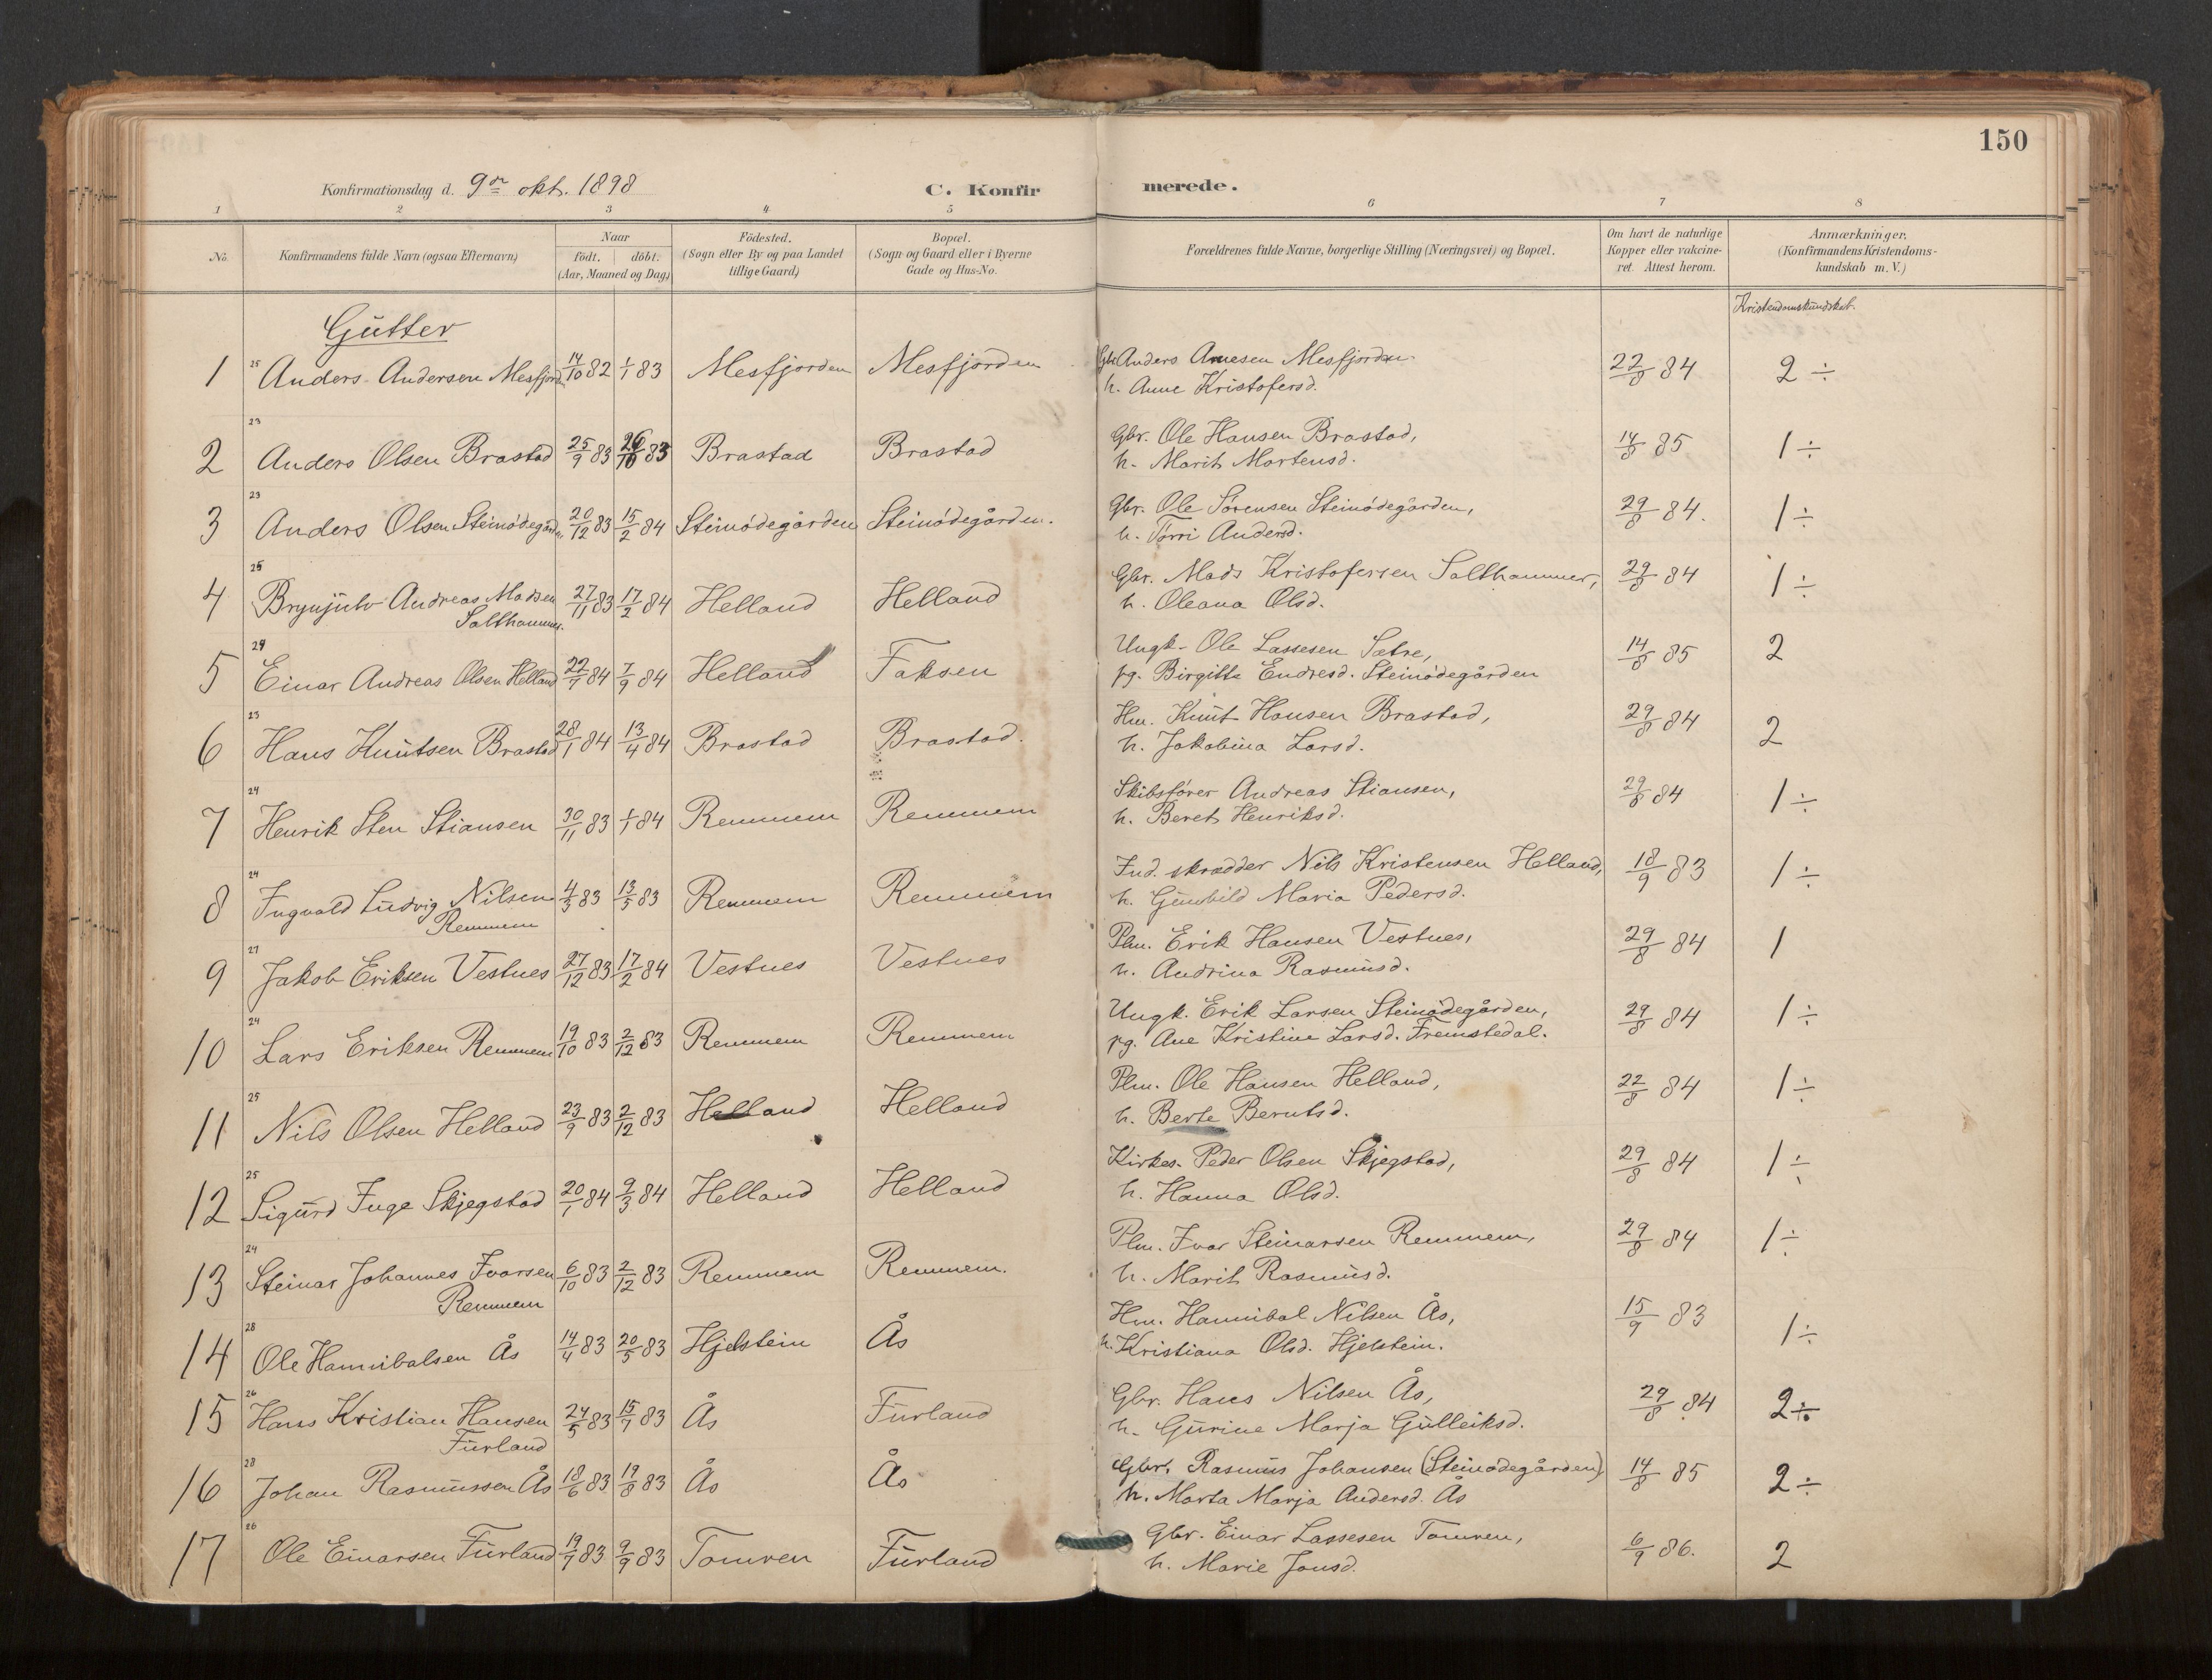 150
Konfirmationsdag d. 9de okt. 1898
C. Konfirmerede.
1 2 3 4 5 6 7 8
No.
Konfirmandens fulde Navn (ogsaa Efternavn)
Naar
födt. döbt.
(Aar, Maaned og Dag)
Födested.
(Sogn eller By og paa Landet
tillige Gaard)
Bopæl.
(Sogn og Gaard eller i Byerne
Gade og Hus-No.
Forældrenes fulde Navne, borgerlige Stilling (Næringsvei) og Bopæl.
Om havt de naturlige
Kopper eller vakcine-
ret. Attest herom.
Anmærkninger,
(Konfirmandens Kristendoms-
kundskab m. V.)
Kristendomskundskab.
Gutter
1 25 Anders Andersen Mesfjord 14/10 82 1/1 83 Mesfjorden Mesfjorden Gbr. Anders Arnesen Mesfjorden 22/8 84 2 ÷
h. Anne Kristofersd.
2 23 Anders Olsen Brastad 25/9 83 26/10 83 Brastad Brastad Gbr. Ole Hansen Brastad, 14/8 85 1 ÷
h. Marit Martensd.
3 23 Anders Olsen Steinödegården 20/12 83 15/2 84 Steinödegården Steinödegården. Gbr. Ole Sørensen Steinödegården, 29/8 84. 1 ÷
h. Tørri Andersd.
4 25 Brynjulv Andreas Madsen 27/11 83 17/2 84 Helland Helland Gbr. Mads Kristofersen Salthammer, 29/8 84 1 ÷
Salthammer. h. Oleana Olsd.
5 24 Einar Andreas Olsen Helland 22/7 84 7/9 84 Helland Faksen Ungk. Ole Lassesen Sætre, 14/8 85 2
pg. Birgitte Endresd. Steinödegården
6 23 Hans Knutsen Brastad 28/1 84 13/4 84 Brastad Brastad. Hm. Knut Hansen Brastad, 29/8 84 2
h. Jakobina Larsd.
7 24 Henrik Sten Stiansen 30/11 83 1/1 84 Remmem Remmem Skibsfører Andreas Stiansen, 29/8 84 1 ÷
h. Beret Henriksd.
8 24 Ingvald Ludvig Nilsen 4/3 83 13/5 83 Remmem Remmem Ind. skrædder Nils Kristensen Helland, 18/9 83 1 ÷
Remmem h. Gunhild Maria Pedersd.
9 27 Jakob Eriksen Vestnes 27/12 83 17/2 84 Vestnes Vestnes Plm. Erik Hansen Vestnes, 29/8 84 1
h. Andrina Rasmusd.
10 24 Lars Eriksen Remmem 19/10 83 2/12 83 Remmem Remmem Ungk. Erik Larsen Steinödegården, 29/8 84 1 ÷
pg. Ane Kristine Larsd. Fremstedal.
11 25 Nils Olsen Helland 23/9 83 2/12 83 Helland Helland Plm. Ole Hansen Helland, 22/8 84 1 ÷
h. Berte Berntsd.
12 25 Sigurd Inge Skjegstad 20/1 84 9/3 84 Helland Helland Kirkes. Peder Olsen Skjegstad, 29/8 84 1 ÷
h. Hanna Olsd.
13 24 Steinar Johannes Ivarsen 6/10 83 2/12 83 Remmem Remmem. Plm. Ivar Steinarsen Remmem, 29/8 84 1 ÷
Remmem h. Marit Rasmusd.
14 28 Ole Hannibalsen Ås 14/4 83 20/5 83 Hjelstein Ås Hm. Hannibal Nilsen Ås, 15/9 83 1 ÷
h. Kristiana Olsd. Hjelstein.
15 26 Hans Kristian Hansen 24/5 83 15/7 83 Ås Furland Gbr. Hans Nilsen Ås, 29/8 84 2 ÷
Furland h. Gurine Marja Gulleiksd.
16 28 Johan Rasmussen Ås 18/6 83 19/8 83 Ås Ås Gbr. Rasmus Johansen (Steinødegården), 14/8 85 2 ÷
h. Marta Marja Andersd. Ås
17 26 Ole Einarsen Furland 19/7 83 9/9 83 Tomren Furland Gbr. Einar Lassesen Tomren, 6/9 86. 2
h. Marie Jonsd.